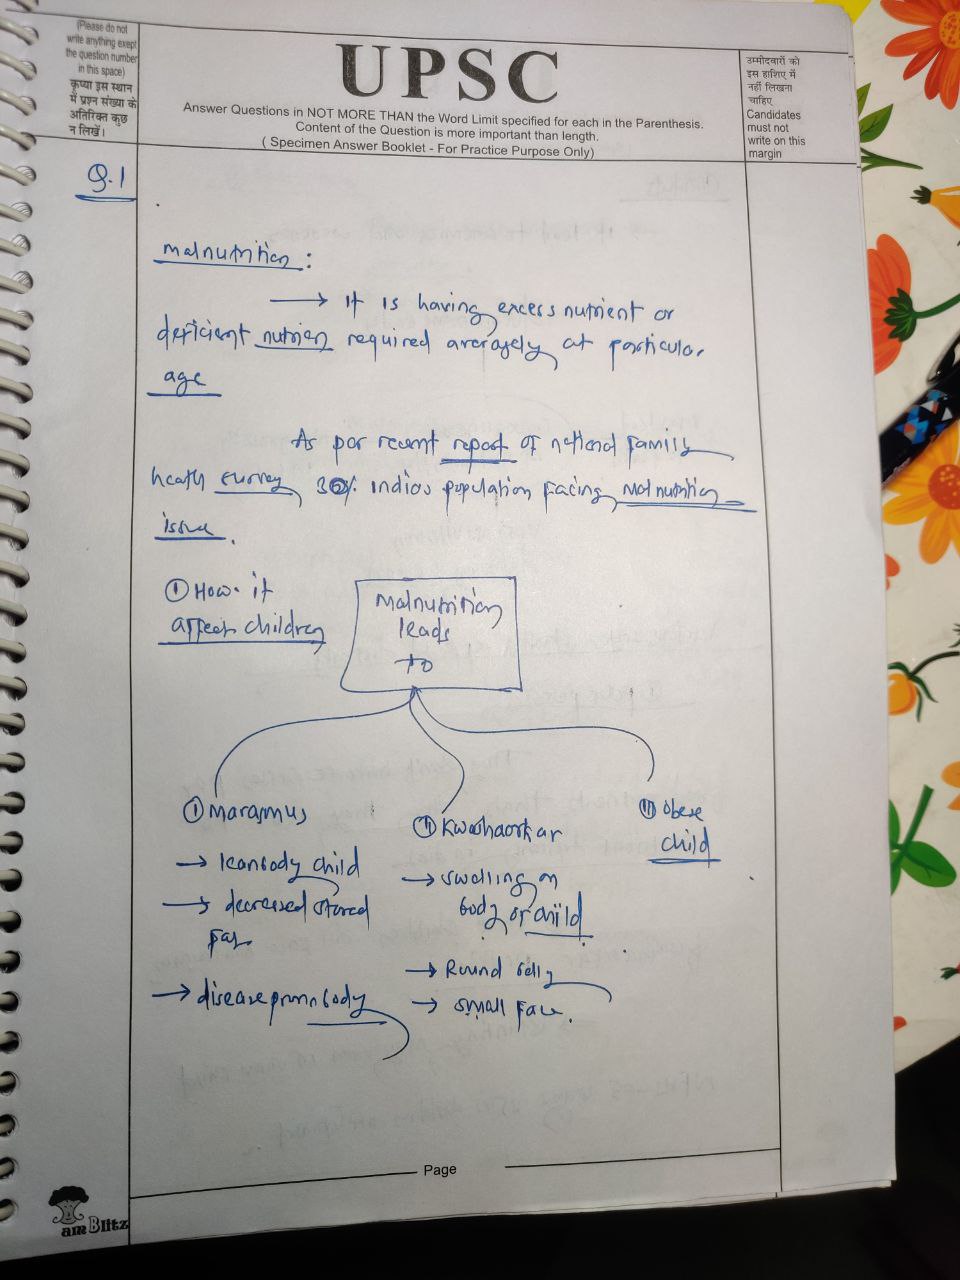 (Please do not
write anything exept
the question number
in this space)
कृप्या इस स्थान
में प्रश्न संख्या के
अतिरिक्त कुछ
न लिखें।
UPSC
Answer Questions in NOT MORE THAN the Word Limit specified for each in the Parenthesis.
Content of the Question is more important than length.
( Specimen Answer Booklet - For Practice Purpose Only)
उम्मीदवारों को
इस हाशिए में
नहीं लिखना
चाहिए
Candidates
must not
write on this
margin
Q.1
malnutrition :
→ It is having excess nutrient or
deficient nutrien required averagely at particular
age
As par recent report of national family
heath survey, 30% Indias population facing Malnutrition
issue.
① How it
affect children
Malnutrition
leads
to
① marasmus
→ leanbody child
→ decreased stored
fat
→ disease pron body
⑪ Kwashaorkar
→ swelling on
body of child
→ Round belly
→ small face.
⑪⑪ obese
child
Page
am Blitz